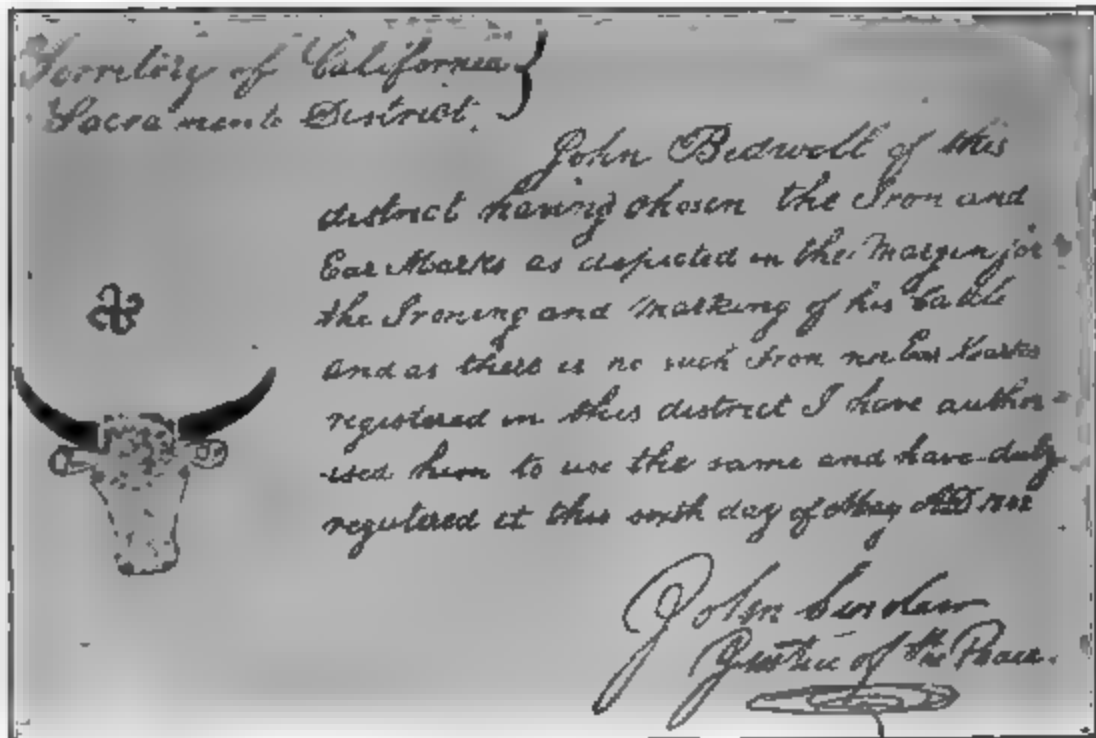 Territory of California
Sacramento District.
John Bidwell of this
district having chosen the Iron and
Ear Marks as depicted in the Margin for
the Ironing and marking of his Cattle
and as there is no such Iron nor Ear Marks
registered in this district I have author-
ised him to use the same and have duly
registered it this sixth day of May AD
John Sinclair
Justice of the Peace.